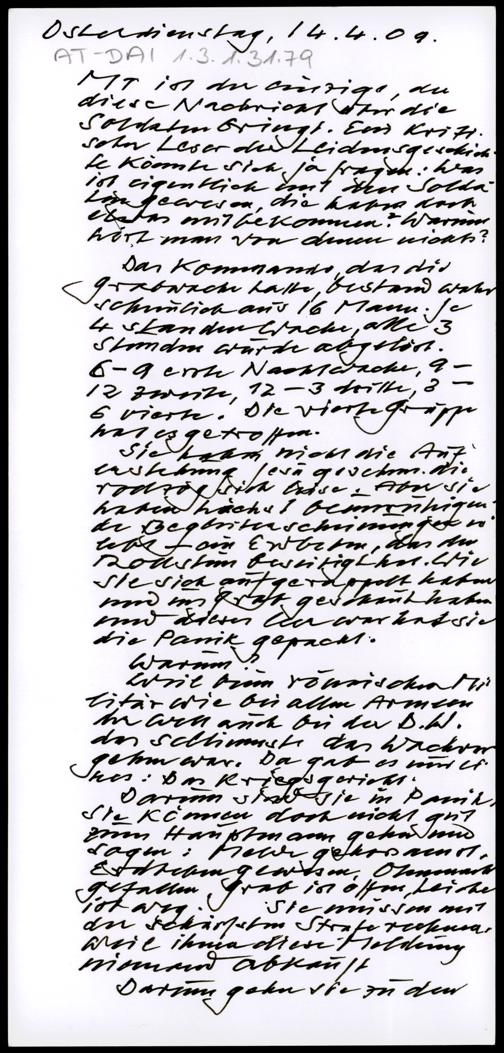 Osterdienstag, 14.4.09.
AT-DAI 1.3.1.31.79
MT ist der einzige, der
diese Nachricht über die
Soldaten bringt. Ein kriti-
scher Leser der Leidensgeschich-
te könnte sich ja fragen: Was
ist eigentlich mit den Solda-
ten gewesen, die haben doch
etwas mitbekommen? Warum
hört man von denen nichts?
Das Kommando, das die
Grabwache hatte, bestand wahr
scheinlich aus 16 Mann. Je
4 standen Wache, alle 3
Stunden wurde abgelöst.
6-9 erste Nachtwache, 9-
12 zweite, 12-3 dritte, 3-
6 vierte. Die vierte Gruppe
hat es getroffen.
Sie haben nicht die Auf
erstehung Jesu gesehen. die
vollzog sich leise. Aber sie
haben höchst beunruhigen-
de Begleiterscheinungen er
lebt - ein Erdbeben, das den
Rollstein beseitigt hat. Wie
sie sich aufgerappelt haben
und ins Grab geschaut haben
und dieses leer war hat sie
die Panik gepackt.
Warum?
Weil beim römischen Mi
litär wie bei allen Armeen
der Welt auch bei der D.W.
das schlimmste das Wachver
gehen war. Da gab es nur ei
nes: Das Kriegsgericht.
Darum sind sie in Panik.
Sie können doch nicht gut
zum Hauptmann gehen und
sagen: Melde gehorsamst,
Erdbeben gewesen, Ohnmacht
gefallen, Grab ist offen, Leiche
ist weg. Sie müssen mit
der schärfsten Strafe rechnen.
Weil ihnen diese Meldung
niemand abkauft
Darum gehen sie zu den